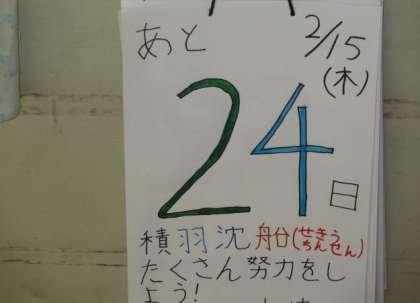 あと 2/15
(木)
24日
積羽沈船(せきうちんせん)
たくさん努力をし
よう!